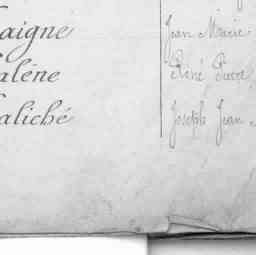 aigne Jean Marie
alène Réné Pierre
aliché Joseph Jean